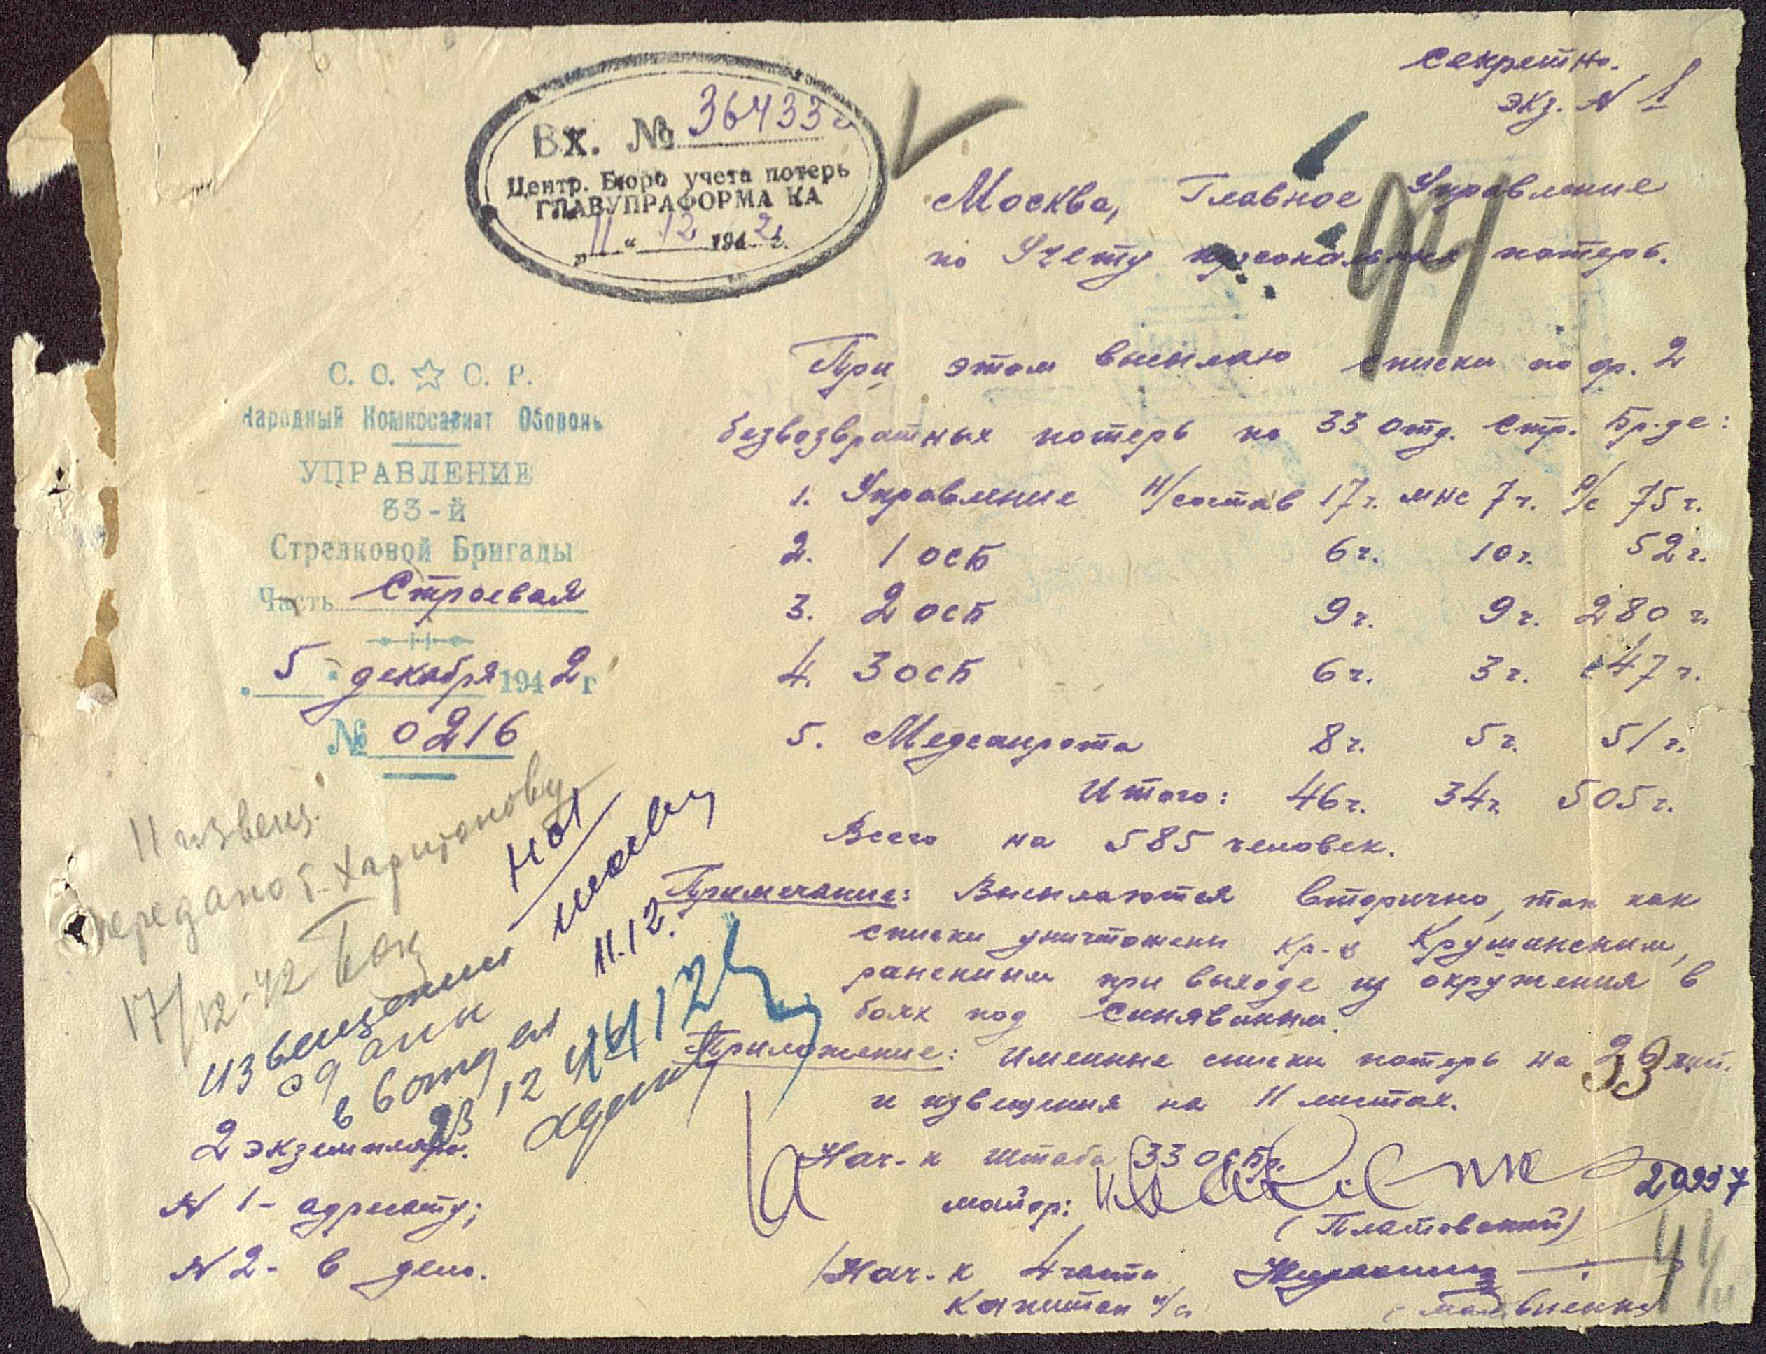 Секретно.
экз. № 1
Вх. № 36433с
Центр. Бюро учета потерь
ГЛАВУПРАФОРМА КА
„11“ 12 1942 г.
Москва, Главное Управление
по Учету персональных потерь.
94
С. С. ☆ С. Р.
Народный Комисариат Обороны
УПРАВЛЕНИЕ
33-й
Стрелковой Бригады
Часть Строевая
„5“ декабря 1942 г
№ 0216
При этом высылаю списки по ф. 2
безвозвратных потерь по 33 отд. Стр. Бр-де:
1. Управление н/состав 17ч. мнс 7ч. р/с 75ч.
2. 1 осБ 6ч. 10ч. 52ч.
3. 2 осБ 9ч. 9ч. 280ч.
4. 3 осБ 6ч. 3ч. 47ч.
5. Медсанрота 8ч. 5ч. 51ч.
Итого: 46ч. 34ч. 505ч.
Всего на 585 человек.
Примечание: Высылаются вторично, так как
списки уничтожены кр-ц Крушинским,
раненным при выходе из окружения в
боях под Синявиным.
Приложение: Именные списки потерь на 39 лист.
и извещения на 11 листах.
Нач-к штаба 33 осБр.
майор:
(Платовский)
20937
Нач-к 4 части
капитан и/с
44
11 извещ.
передано т. Харитонову
17/12-42
11.12.
извещении
сданы
в 6 отдел
23 12 42
2 экземпляра.
№ 1 - адресату;
№ 2 - в дело.